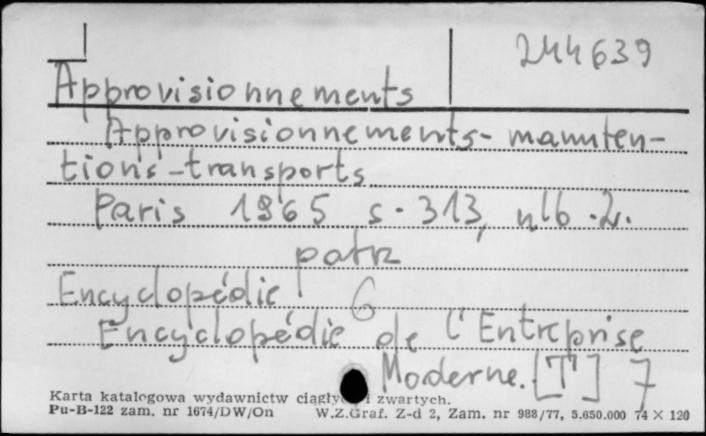 244639
Approvisionnements
Approvisionnements-manuten-
tions-transports
Paris 1965 s. 313, nlb. 2.
patrz
Encyclopédie 6
Encyclopédie de l'Entreprise
Moderne. [T] 7
Karta katalogowa wydawnictw ciągłyc i zwartych.
Pu-B-122 zam. nr 1674/DW/On W.Z.Graf. Z-d 2, Zam. nr 988/77, 5.650.000 74 X 120